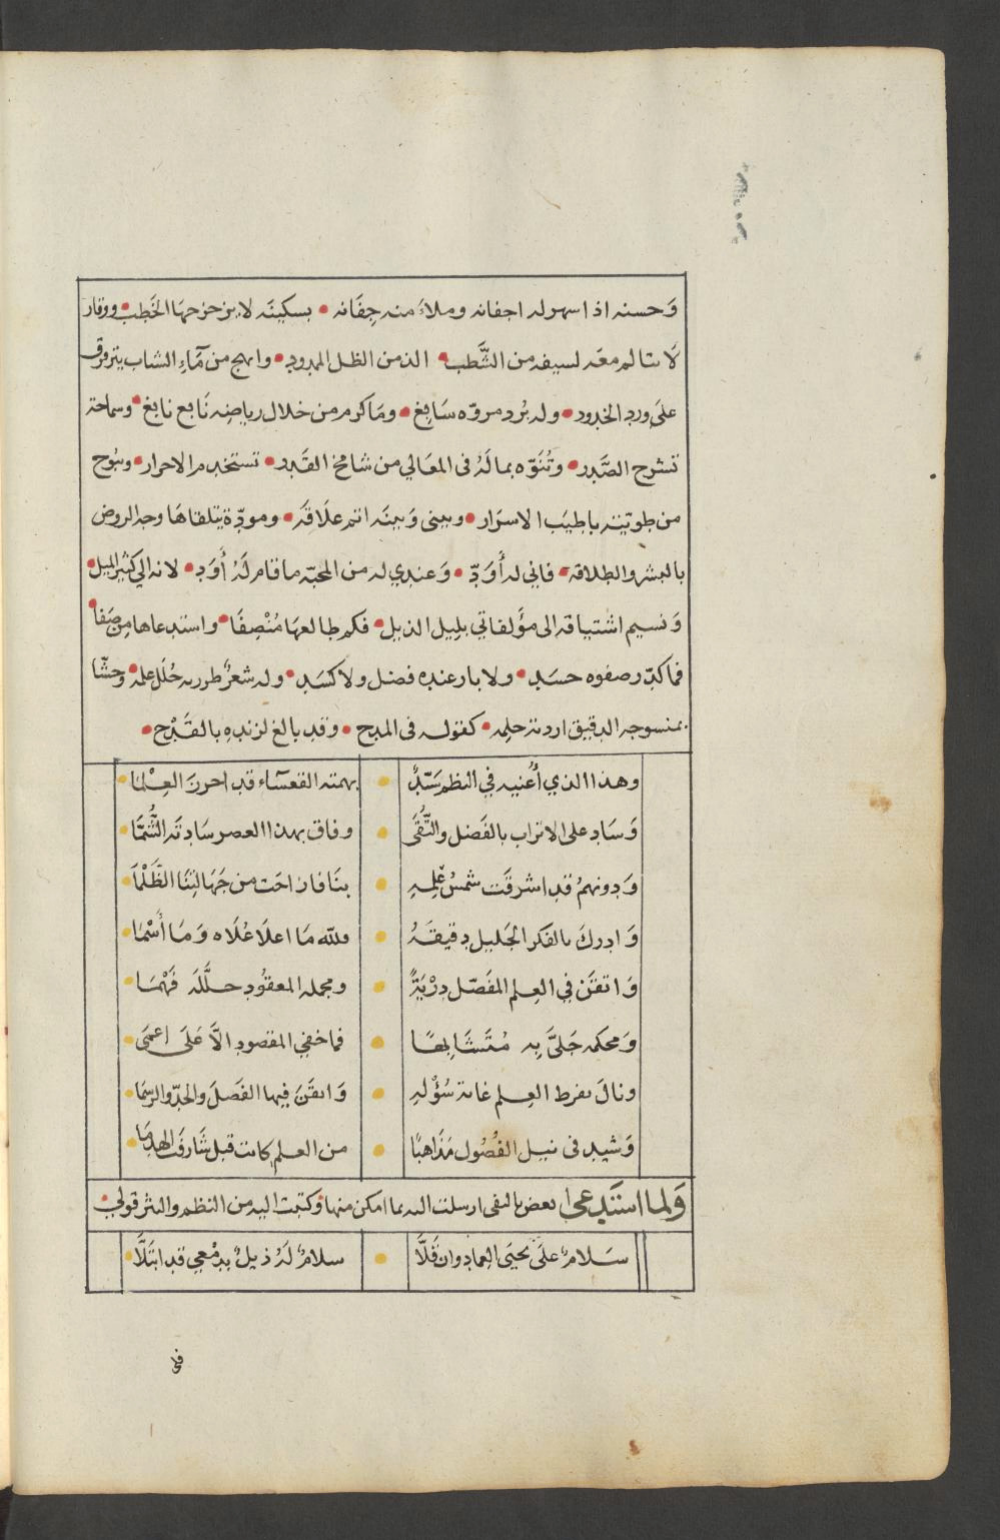 وَحسنه اذا اسهر له اجفانه وملأ منه جِفَانه • بسكينَه لا يزحزحهَا الخَطب • ووقار
لَا يثالم معَه لسيفه من الشَّطب • الذ من الظل الممدود • وابهج من مَآءِ الشباب يترقرق
على ورد الخدود • وله بُرد مروّه سَابِغ • ومَا كرم من خلال رياضِه نَابع نابغ • وسماحة
تشرح الصَّدر • وتُنَوّه بما لَهُ فى المعَالي من شامخ القَدر • تستخدم الاحرار • وتبوح
من طويّته باطيَب الاسرَار • وبينى وَبينَه اتم علَاقَه • ومودّة يتلقاهَا وجه الروض
بالبشر والطلاقه • فاني له أَوَدّ • وَعندي له من المحبّه ما قام لَهُ أَوَد • لانه الي كثير الميل •
وَنسيم اشتياقه الى مؤَلفاتي بليل الذيل • فكم طالعهَا مُنْصِفًا • واستدعاها من صَفَا •
فما كدّر صفوه حسَد • ولا بار عنده فضل ولا كسَد • وله شعرٌ طرر به حُلَل علمه • وحشّا
بمنسوجه الدقيق اردية حلمِه • كقوله فى المدح • وقد بالغ لزندهِ بالقَدْح •
وهذا الذي أُعنيه في النظم سَيّدٌ • بهمته القعسَآء قد احرزَ العِلْمَا •
وَسَاد على الاتراب بالفَضل والتُّقَى • وفاق بهذا العصر سَادتَه الشُّمَّا •
وَدونهمُ قد اشرقَت شمسُ عِلمِهِ • بنَا فازاحَت من جَهَالتِنَا الظَّلْمَا •
وَادركَ بالفكر الجَليل دقيقَهُ • فلله مَا اعلَا عُلَاه وَمَا أَسْمَا •
وَاتقنَ في العِلم المفَصّل دِرْيَةً • ومجمله المعقُود حلَّلَه فَهْمَا •
وَمحكمه جَلىَّ بِهِ مُتَشَابِهًا • فما خفي المقصود الَّا عَلَى اعمَى •
ونالَ بفرط العِلم غاية سُؤْلهِ • وَاتقَنَ فيها الفَصلَ والحدّ والرسمَا •
وَشيد فى نيل الفُصُول مَذَاهبًا • من العلم كانت قبل شَارفَت الهدمَا •
وَلما استَدعى بعض تاليفى ارسلت اليه بما امكن منها • وكتبت اليه من النظم والنثر قولي •
سَلامٌ علَى يحيَى العماد وان قَلَّا • سلامٌ لَهُ ذيلٌ بدمْعي قد ابتَلَّا •
فلا